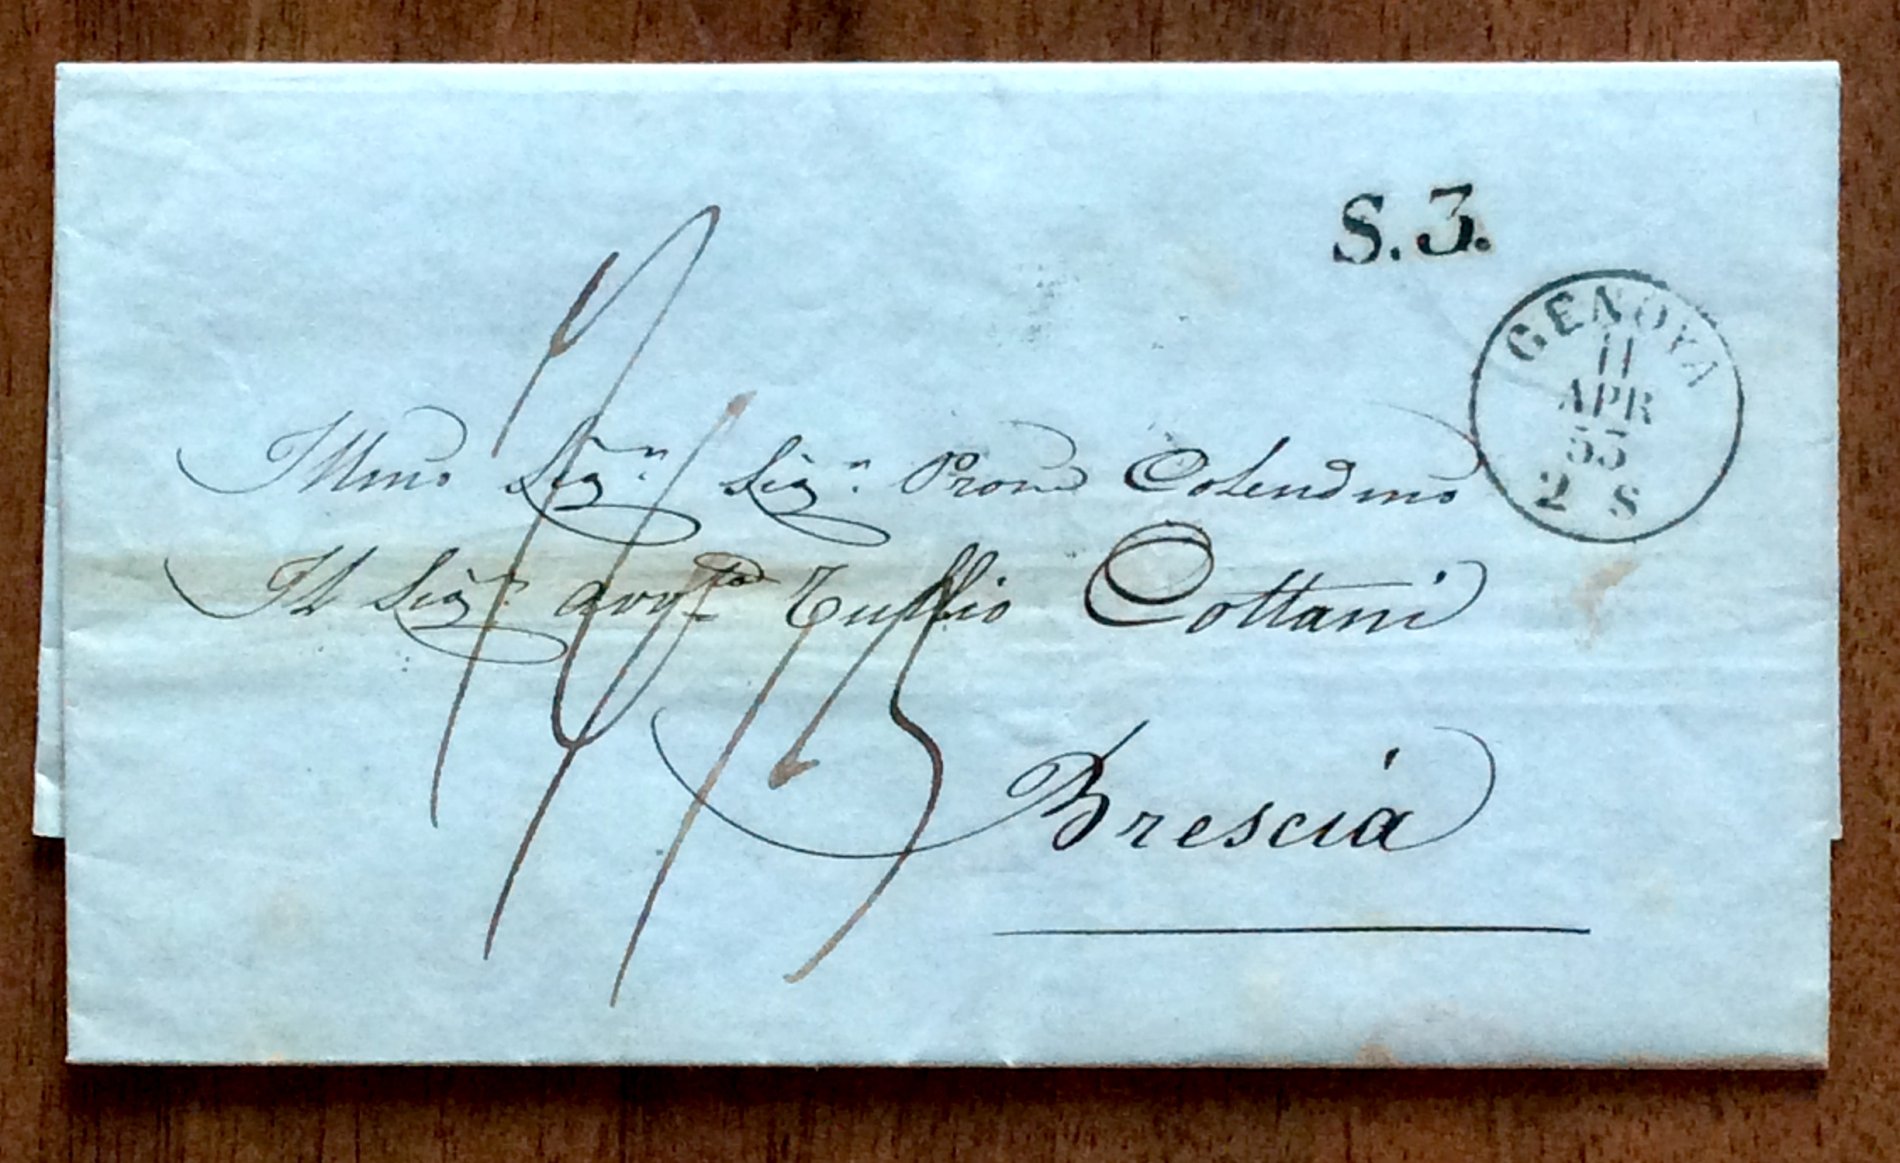 S. 3.
GENOVA
11
APR
55
2 S
Illmo Sigr. Sigr. Pron Colendmo
Il Sigr. Avvto Tullio Cottani
Brescia